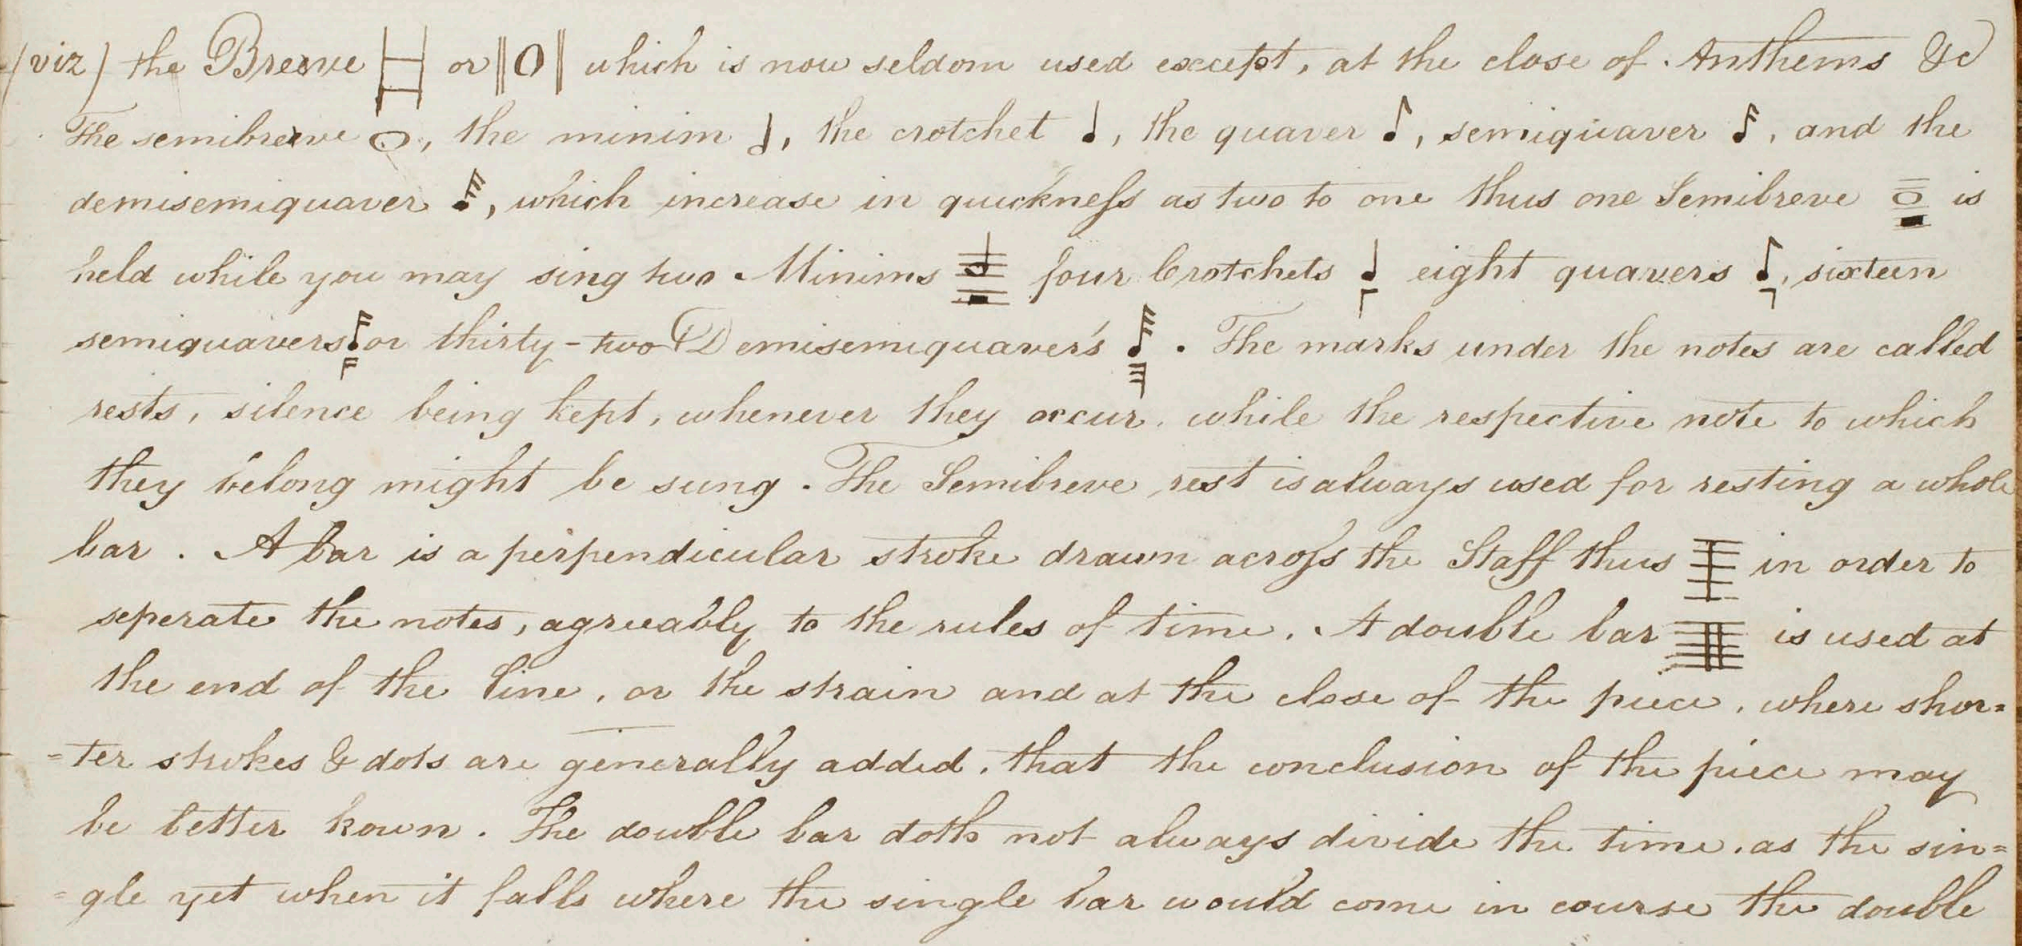 (viz) the Breve or which is now seldom used except, at the close of Anthems &c
The semibreve, the minim, the crotchet, the quaver, semiquaver, and the
demisemiquaver, which increase in quickness as two to one thus one Semibreve is
held while you may sing two Minims four Crotchets eight quavers, sixteen
semiquavers or thirty-two Demisemiquaver's. The marks under the notes are called
rests, silence being kept, whenever they occur, while the respective note to which
they belong might be sung. The Semibreve rest is always used for resting a whole
bar. A bar is a perpendicular stroke drawn across the Staff thus in order to
seperate the notes, agreeably to the rules of time. A double bar is used at
the end of the line, or the strain and at the close of the piece, where shor=
=ter strokes & dots are generally added, that the conclusion of the piece may
be better kown. The double bar doth not always divide the time, as the sin=
=gle yet when it falls where the single bar would come in course the double